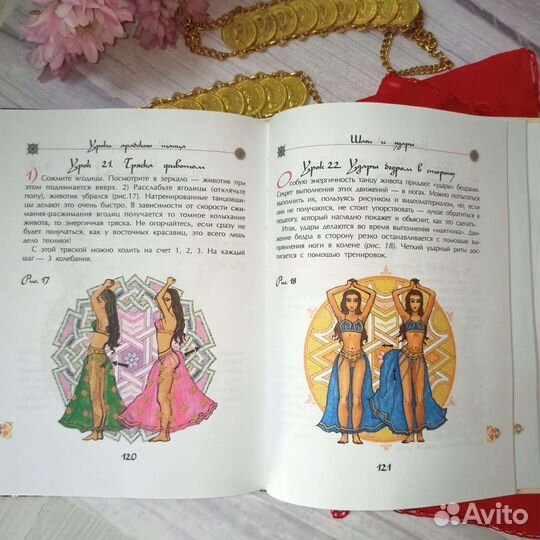 Уроки арабского танца
Урок 21. Тряска животом
1) Сожмите ягодицы. Посмотрите в зеркало — животик при
этом поднимается вверх. 2) Расслабьте ягодицы (отключите
попу), животик убрался (рис.17). Натренированные танцовщи-
цы делают это очень быстро. В зависимости от скорости сжи-
мания-разжимания ягодиц получается то томное колыхание
живота, то энергичная тряска. Не огорчайтесь, если сразу не
будет получаться, как у восточных красавиц, это всего лишь
дело техники!
С этой тряской можно ходить на счет 1, 2, 3. На каждый
шаг — 3 колебания.
Рис. 17
120
Шаги и удары
Урок 22. Удары бедром в сторону
Особую энергичность танцу живота придают «удары» бедрами.
Секрет выполнения этих движений — в ногах. Можно попытаться
выполнить их, пользуясь рисунком и видеоматериалом, но, если
они не получаются, не стоит упорствовать — лучше обратиться к
педагогу, который наглядно покажет и объяснит, как это сделать.
Итак, удары делаются во время выполнения «маятника». Движе-
ние бедра в сторону резко останавливается с помощью вы-
прямления ноги в колене (рис. 18). Четкий ударный ритм дос-
тигается с помощью тренировок.
Рис. 18
121
Avito